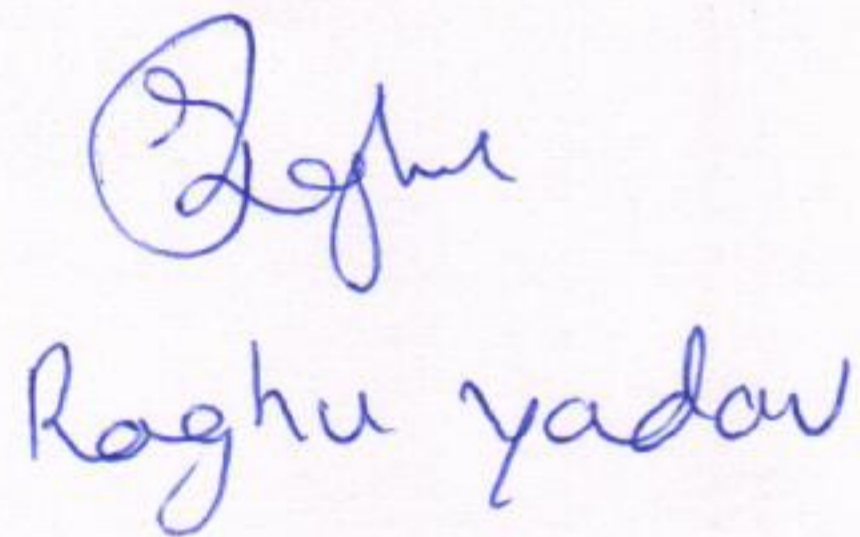 Raghu
Raghu yadav